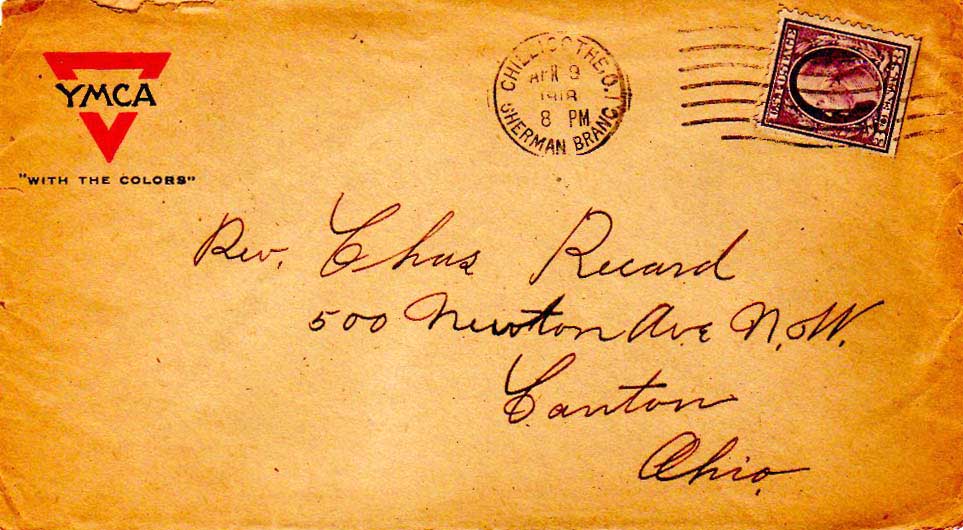 YMCA
"WITH THE COLORS"
CHILLICOTHE, O.
APR 9
1918
8 PM
SHERMAN BRANCH
U.S. POSTAGE
3 CENTS 3
Rev. Chas Recard
500 Newton Ave N.W.
Canton
Ohio